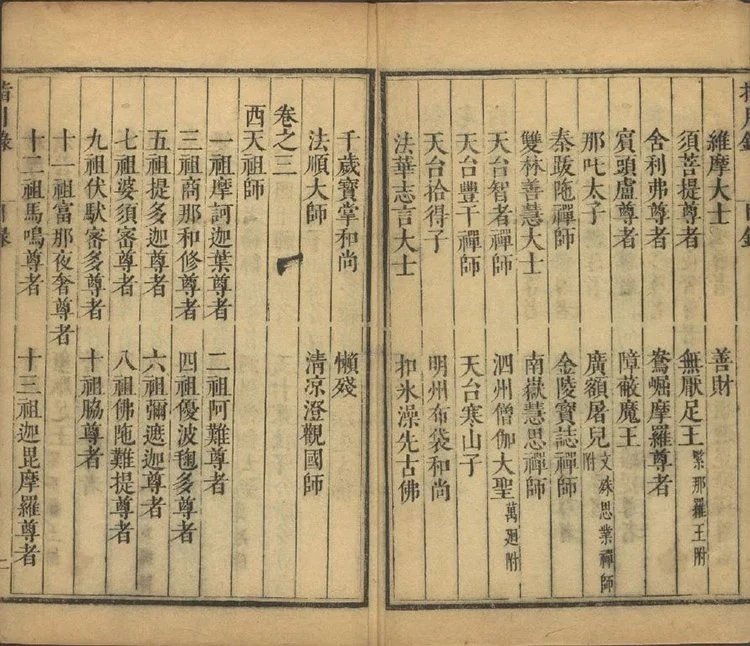 維摩大士　善財
須菩提尊者　無厭足王 緊那羅王附
舍利弗尊者　鴦崛摩羅尊者
賓頭盧尊者　障蔽魔王
那吒太子　廣額屠兒 文殊思業禪師附
秦跋陁禪師　金陵寶誌禪師
雙林善慧大士　南嶽慧思禪師
天台智者禪師　泗州僧伽大聖 萬廻附
天台豐干禪師　天台寒山子
天台拾得子　明州布袋和尚
法華志言大士　扣氷澡先古佛
千歲寶掌和尚　懶殘
法順大師　清凉澄觀國師
卷之三
西天祖師
一祖摩訶迦葉尊者　二祖阿難尊者
三祖商那和修尊者　四祖優波毱多尊者
五祖提多迦尊者　六祖彌遮迦尊者
七祖婆須密尊者　八祖佛陁難提尊者
九祖伏馱密多尊者　十祖脇尊者
十一祖富那夜奢尊者
十二祖馬鳴尊者　十三祖迦毘摩羅尊者
指月錄　目錄